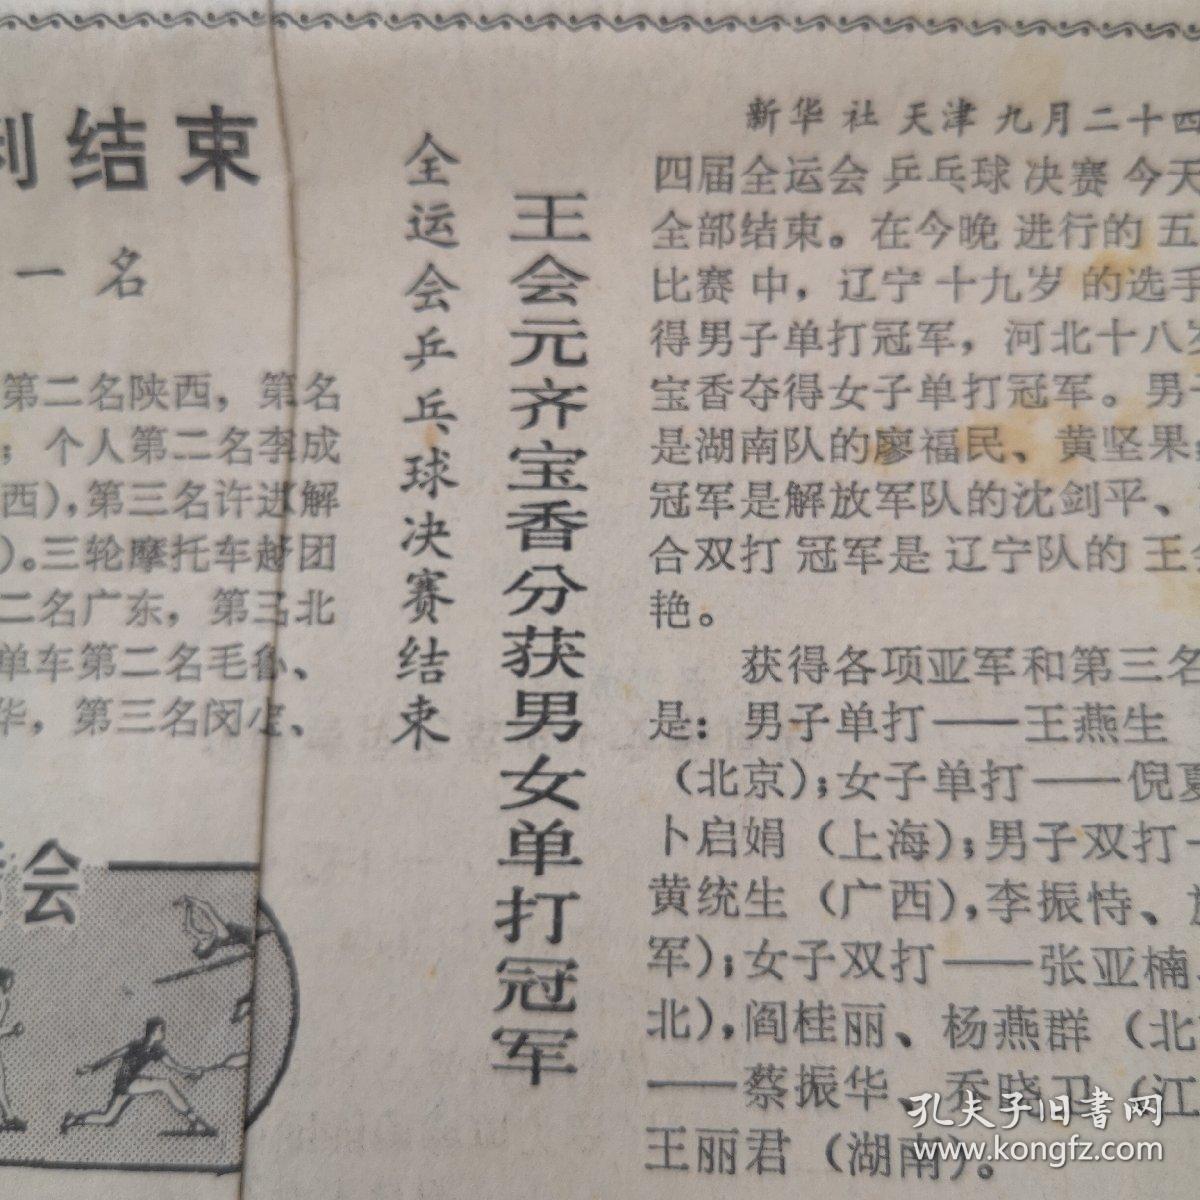 利结束
一名
第二名陕西，第名
；个人第二名李成
西），第三名许进解
）。三轮摩托车越团
二名广东，第三北
单车第二名毛鲁、
华，第三名闵宏、
会
全运会乒乓球决赛结束
王会元齐宝香分获男女单打冠军
新华社天津九月二十四
四届全运会乒乓球决赛今天
全部结束。在今晚进行的五
比赛中，辽宁十九岁的选手
得男子单打冠军，河北十八岁
宝香夺得女子单打冠军。男子
是湖南队的廖福民、黄坚果
冠军是解放军队的沈剑平、
合双打冠军是辽宁队的王会
艳。
获得各项亚军和第三名
是：男子单打——王燕生
（北京）；女子单打——倪夏
卜启娟（上海）；男子双打
黄统生（广西），李振恃、
军）；女子双打——张亚楠
北），阎桂丽、杨燕群（北
——蔡振华、乔晓卫（江
王丽君（湖南）。
孔夫子旧书网
www.kongfz.com